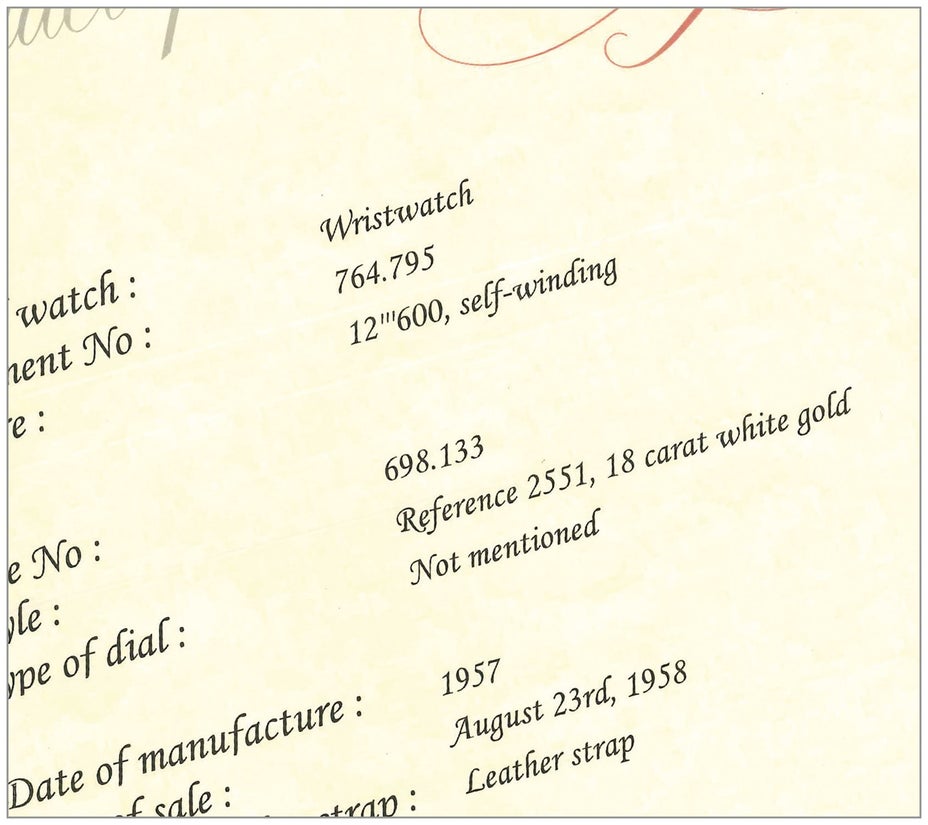 watch : Wristwatch
No : 764.795
12'''600, self-winding
No : 698.133
Reference 2551, 18 carat white gold
of dial : Not mentioned
Date of manufacture : 1957
of sale : August 23rd, 1958
strap : Leather strap